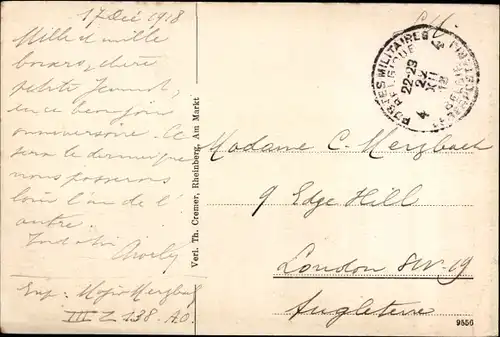 17 Déc 1918
Mille et mille
baisers, chère
petite
en ce
anniversaire. Ce
sera le dernier que
nous passerons
loin l'un de l'
autre.
Exp: Major Merzbach
III Z 138. A.O.
Verl. Th. Cremer, Rheinberg, Am Markt
S.M.
POSTES MILITAIRES
BELGIQUE
22-23
22
XII
18
4
4
Madame C. Merzbach
9 Edge Hill
London SW-19
Angleterre
9556